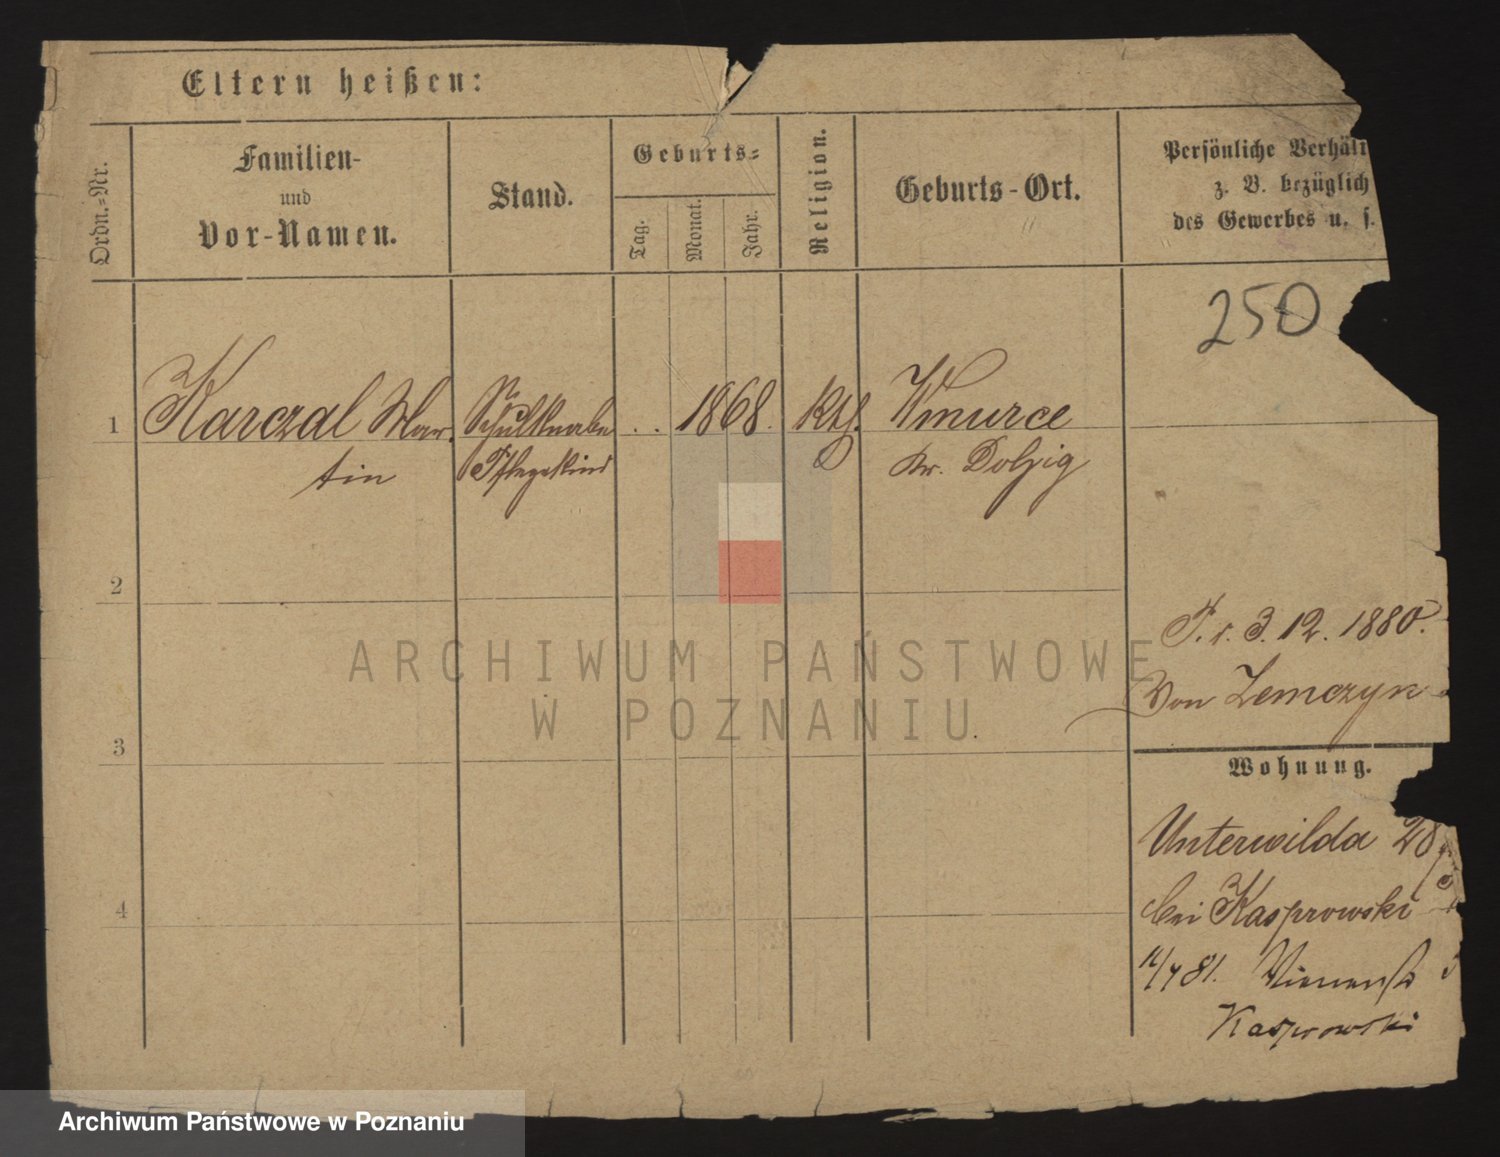 Eltern heißen:
Ordn.-Nr.
Familien-
und
Vor-Namen.
Stand.
Geburts-
Tag.
Monat.
Jahr.
Religion.
Geburts-Ort.
Persönliche Verhält
z. B. bezüglich
des Gewerbes u. s.
250
1 Karczal Mar Schulknabe . . 1868. Kth. Wmurce
tin Pflegekind Kr. Dolzig
2
P. v. 3. 12. 1880.
Von Zemczyn
3
Wohnung.
Unterwilda 28
bei Kasprowski
4
81.
Kasprowski
ARCHIWUM PAŃSTWOWE
W POZNANIU
Archiwum Państwowe w Poznaniu